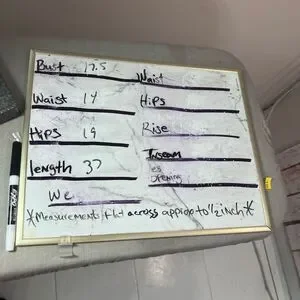 Bust 17.5
Waist 14
Hips 19
length 37
We
Waist
Hips
Rise
Inseam
Opening
*Measurements flat across approx to 1/2 inch*